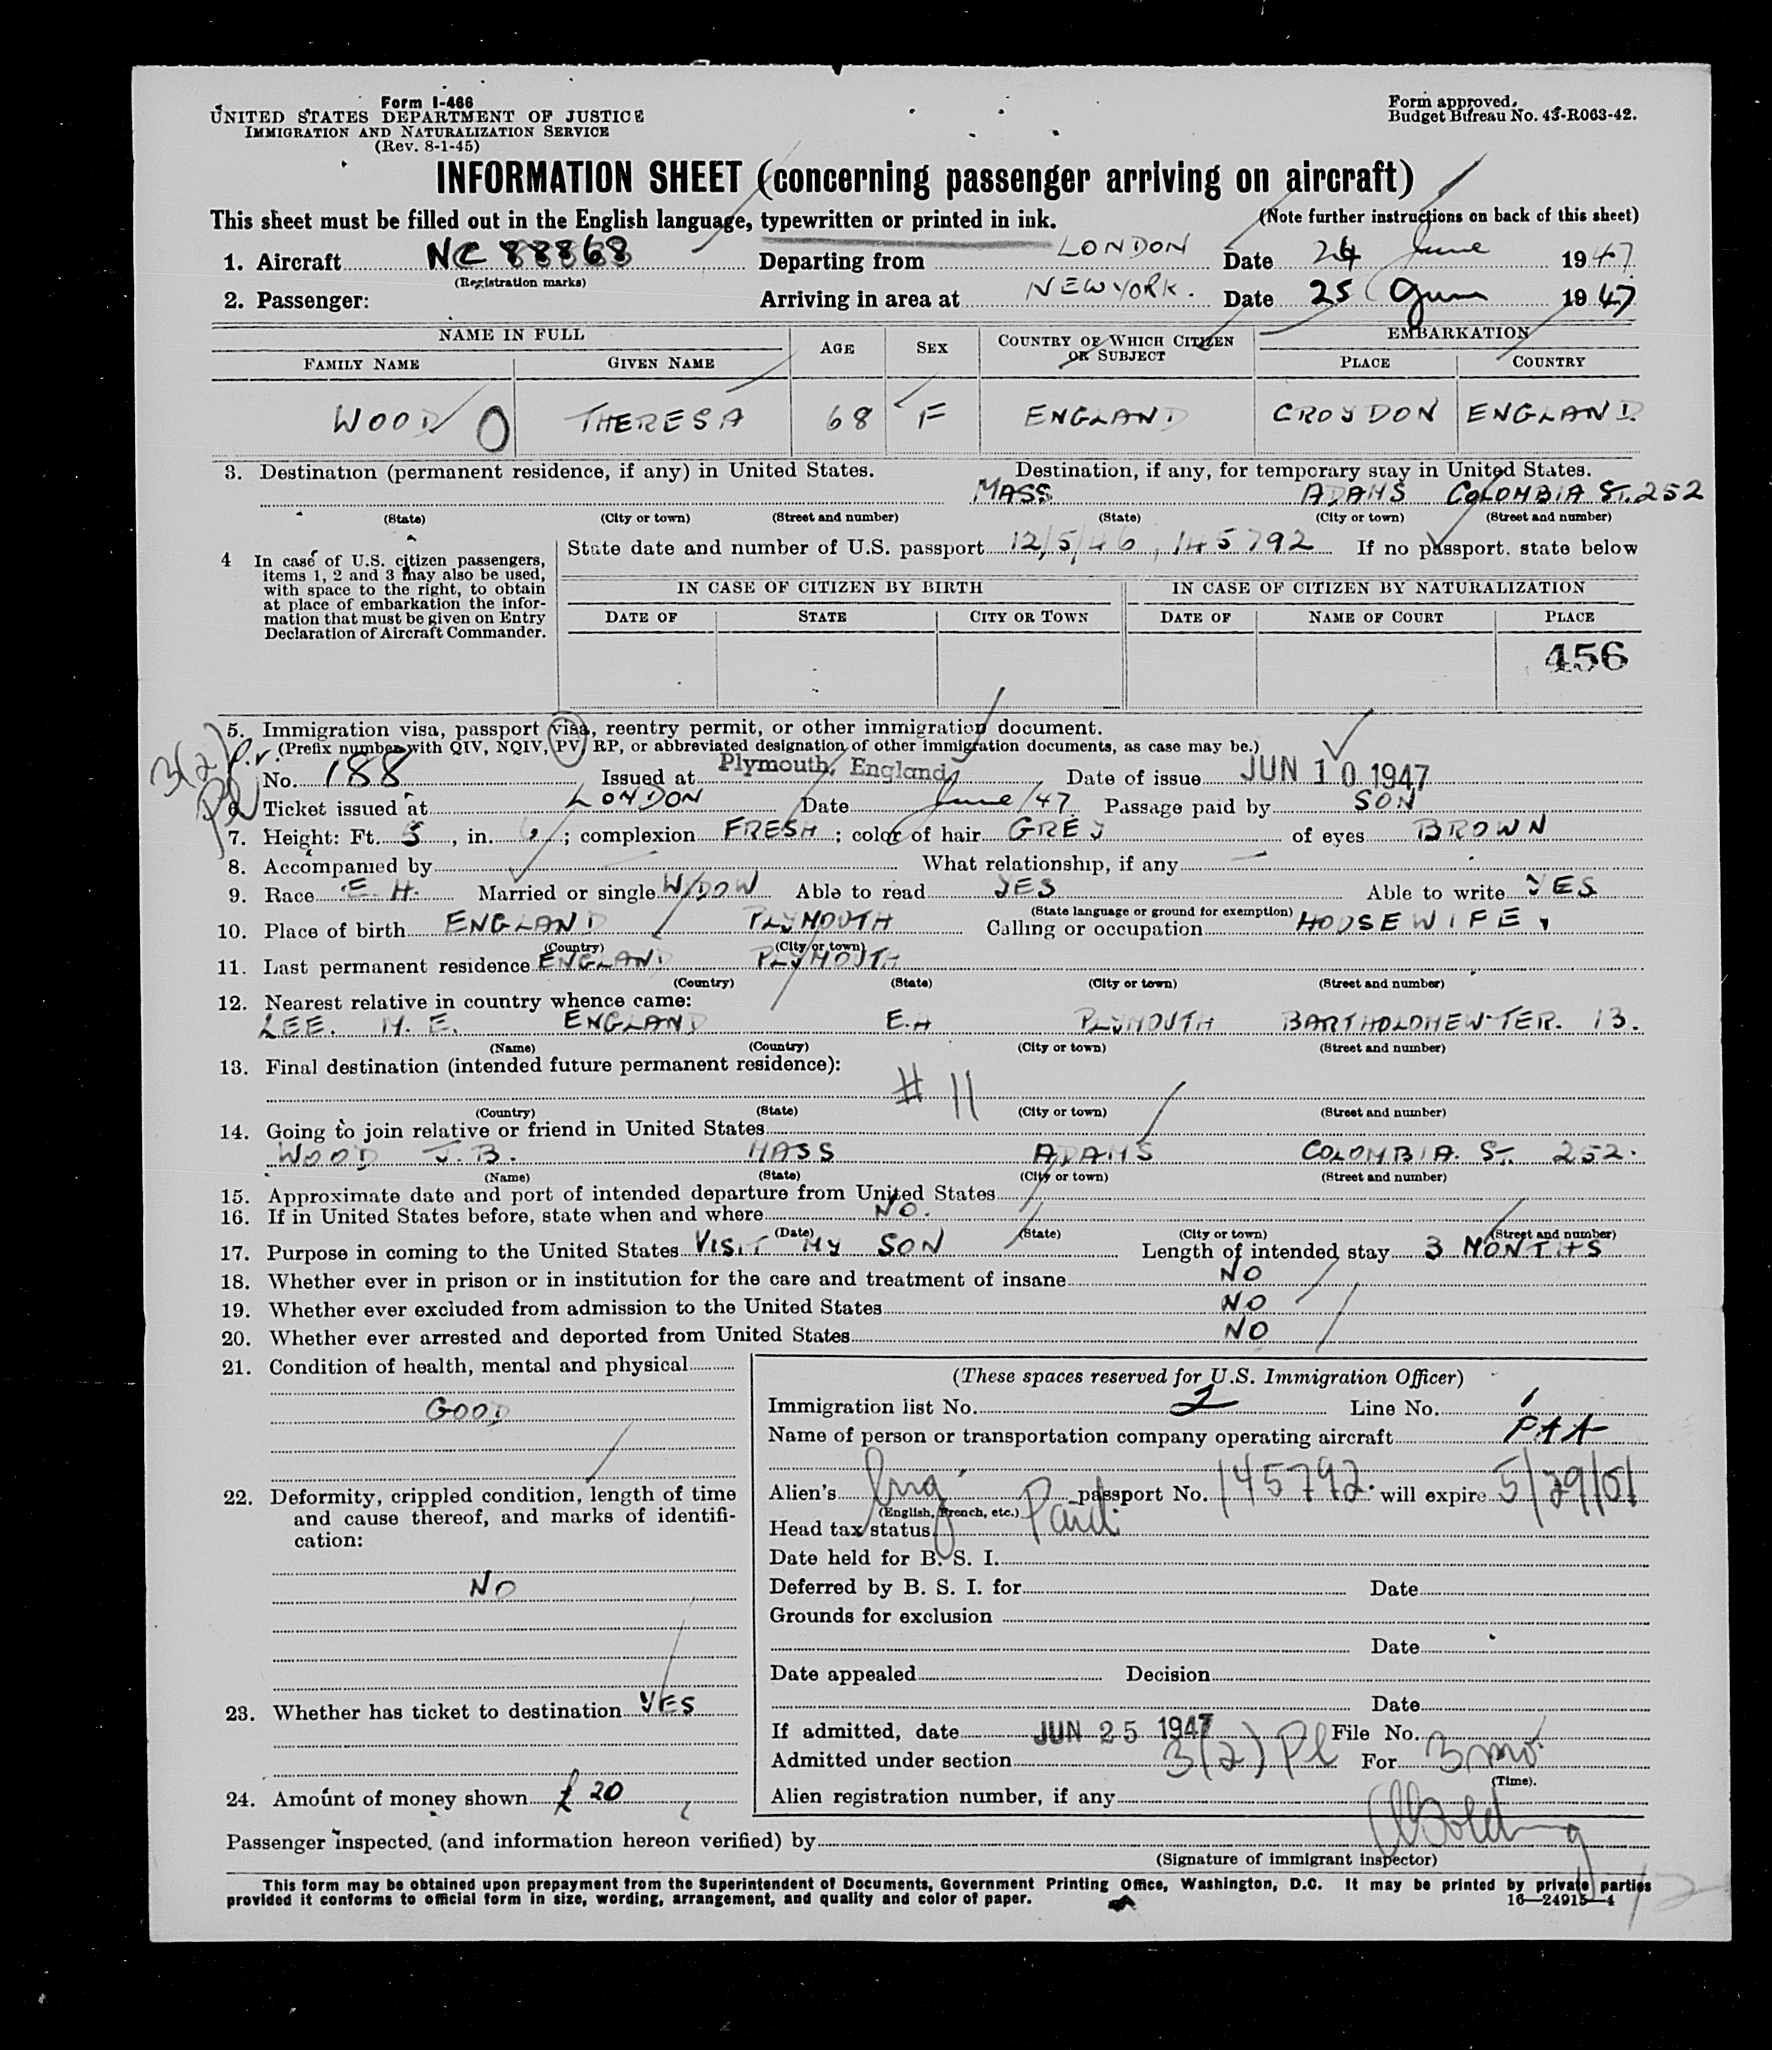 Form I-466
UNITED STATES DEPARTMENT OF JUSTICE
IMMIGRATION AND NATURALIZATION SERVICE
(Rev. 8-1-45)
Form approved.
Budget Bureau No. 43-R063-42.
INFORMATION SHEET (concerning passenger arriving on aircraft)
This sheet must be filled out in the English language, typewritten or printed in ink. (Note further instructions on back of this sheet)
1. Aircraft NC 88868 Departing from LONDON Date 24 June 1947
(Registration marks)
2. Passenger: Arriving in area at NEW YORK. Date 25 June 1947
NAME IN FULL AGE SEX COUNTRY OF WHICH CITIZEN OR SUBJECT EMBARKATION
FAMILY NAME GIVEN NAME PLACE COUNTRY
WOOD THERESA 68 F ENGLAND CROYDON ENGLAND
3. Destination (permanent residence, if any) in United States. Destination, if any, for temporary stay in United States.
MASS ADAMS COLOMBIA ST. 252
(State) (City or town) (Street and number) (State) (City or town) (Street and number)
4 In case of U.S. citizen passengers, items 1, 2 and 3 may also be used, with space to the right, to obtain at place of embarkation the information that must be given on Entry Declaration of Aircraft Commander.
State date and number of U.S. passport 12/5/46, 145792 If no passport, state below
IN CASE OF CITIZEN BY BIRTH IN CASE OF CITIZEN BY NATURALIZATION
DATE OF STATE CITY OR TOWN DATE OF NAME OF COURT PLACE
456
5. Immigration visa, passport visa, reentry permit, or other immigration document.
(Prefix number with QIV, NQIV, PV, RP, or abbreviated designation of other immigration documents, as case may be.)
3(2) P.V.
No. 188 Issued at Plymouth, England Date of issue JUN 10 1947
Pl
6. Ticket issued at LONDON Date June/47 Passage paid by SON
7. Height: Ft. 5, in. ; complexion FRESH; color of hair GREY of eyes BROWN
8. Accompanied by — What relationship, if any —
9. Race E.H. Married or single WIDOW Able to read YES Able to write YES
(State language or ground for exemption)
10. Place of birth ENGLAND PLYMOUTH Calling or occupation HOUSEWIFE
(Country) (City or town)
11. Last permanent residence ENGLAND PLYMOUTH
(Country) (State) (City or town) (Street and number)
12. Nearest relative in country whence came:
LEE. M. E. ENGLAND E.H PLYMOUTH BARTHOLOMEW TER. 13.
(Name) (Country) (City or town) (Street and number)
13. Final destination (intended future permanent residence):
# 11
(Country) (State) (City or town) (Street and number)
14. Going to join relative or friend in United States
WOOD J.B. MASS ADAMS COLOMBIA. ST. 252.
(Name) (State) (City or town) (Street and number)
15. Approximate date and port of intended departure from United States
16. If in United States before, state when and where NO.
(Date) (State) (City or town) (Street and number)
17. Purpose in coming to the United States VISIT MY SON Length of intended stay 3 MONTHS
18. Whether ever in prison or in institution for the care and treatment of insane NO
19. Whether ever excluded from admission to the United States NO
20. Whether ever arrested and deported from United States NO
21. Condition of health, mental and physical
GOOD
22. Deformity, crippled condition, length of time
and cause thereof, and marks of identifi-
cation:
NO
23. Whether has ticket to destination YES
24. Amount of money shown £ 20
(These spaces reserved for U.S. Immigration Officer)
Immigration list No. 2 Line No. 1
Name of person or transportation company operating aircraft PAA
Alien's Eng passport No. 145792 will expire 5/29/51
(English, French, etc.)
Head tax status Paid
Date held for B. S. I.
Deferred by B. S. I. for Date
Grounds for exclusion
Date
Date appealed Decision
Date
If admitted, date JUN 25 1947 File No.
Admitted under section 3(2) Pl For 3 mo.
(Time).
Alien registration number, if any
Passenger inspected, (and information hereon verified) by
(Signature of immigrant inspector)
This form may be obtained upon prepayment from the Superintendent of Documents, Government Printing Office, Washington, D.C. It may be printed by private parties
provided it conforms to official form in size, wording, arrangement, and quality and color of paper. 16—24915-4